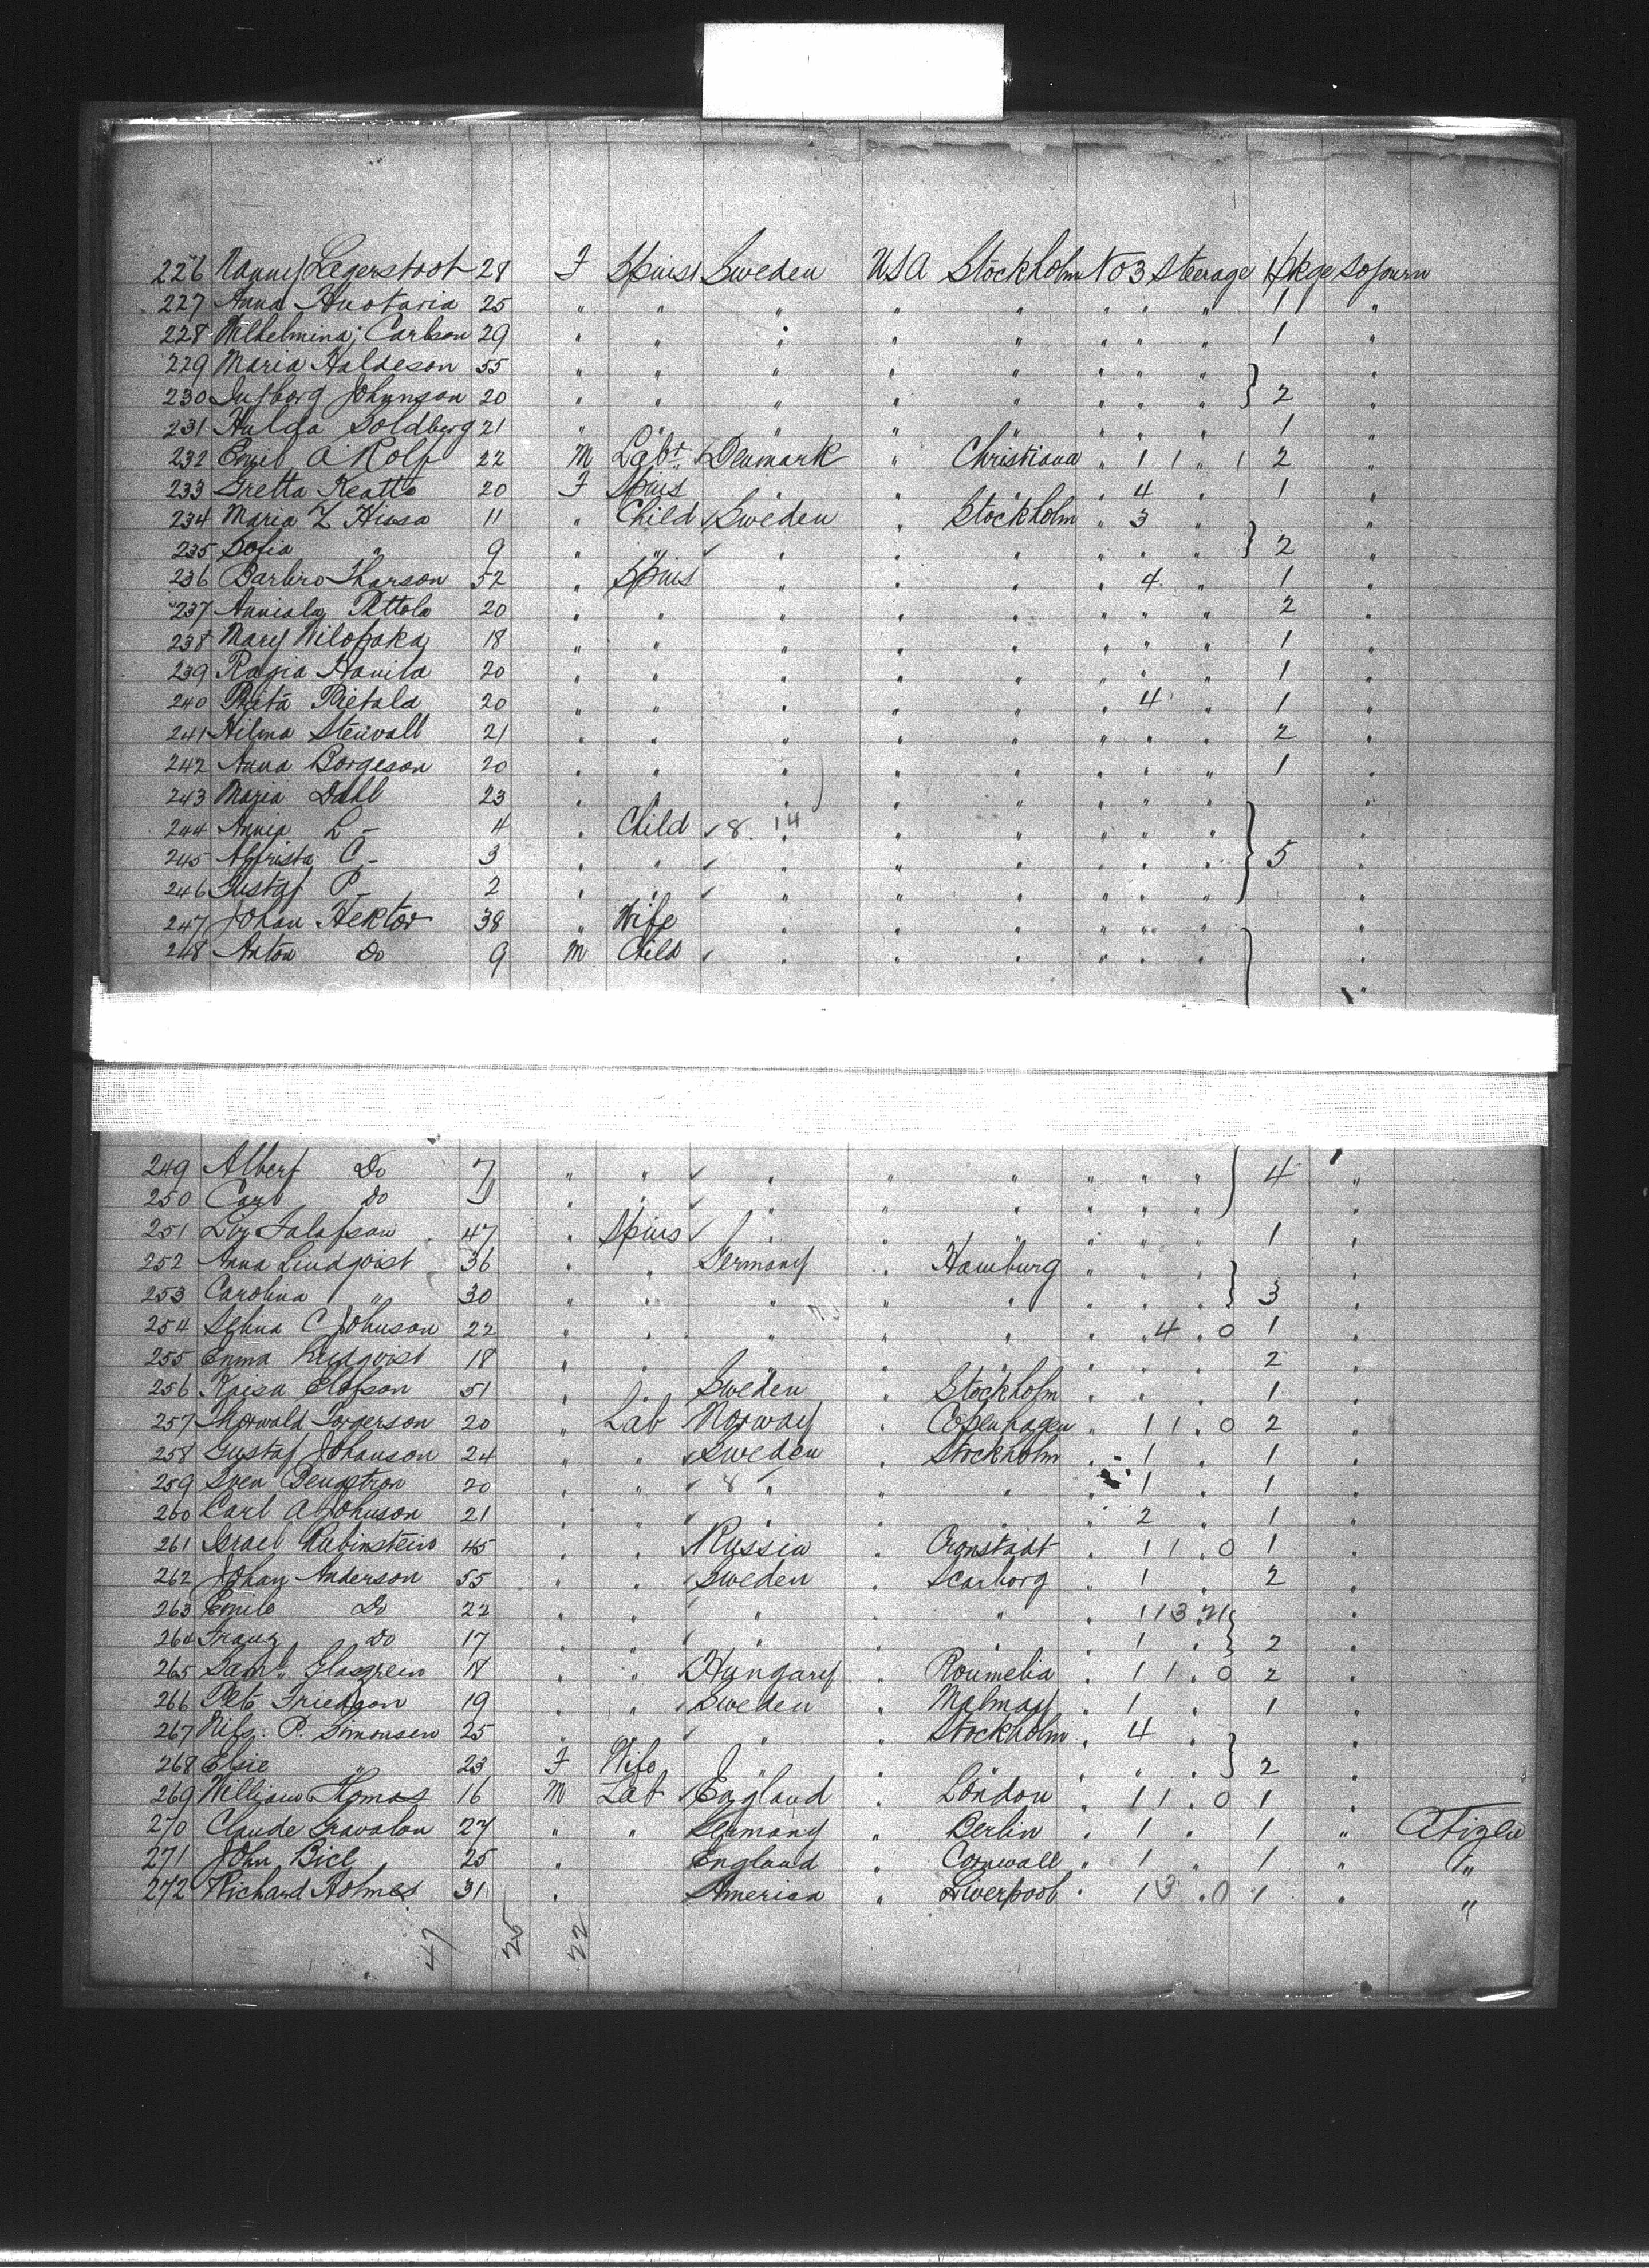 226 Nanny Lagerstoot 28 F Spins Sweden USA Stockholm No 3 Steerage 1 pkge Sojourn
227 Anna Huotaria 25 " " " " " " " " 1 "
228 Wilhelmina Carlson 29 " " " " " " " " 1 "
229 Maria Haldeson 55 " " " " " " " " "
230 Johnson 20 " " " " " " " " } 2 "
231 Hulda Soldberg 21 " " " " " " " " 1 "
232 Emil A Rolf 22 M Labr Denmark " Christiana " 1 1 " 1 2 "
233 Gretta Keatto 20 F Spins " " 4 " 1 "
234 Maria Z Hissa 11 " Child Sweden " Stockholm " 3 " "
235 Sofia " 9 " " " " " " " " } 2 "
236 Barbro Tharson 52 " Spins " " " " 4 " 1 "
237 Pettola 20 " " " " " " " " 2 "
238 Mary Nilopaka 18 " " " " " " " " 1 "
239 Havila 20 " " " " " " " " 1 "
240 Pietala 20 " " " " " " 4 " 1 "
241 Hilma Stenvall 21 " " " " " " " " 2 "
242 Anna Borgeson 20 " " " " " " " " 1 "
243 Maria Dahl 23 " " " " " " " " "
244 Annia L - 4 " Child 8 14 " " " " " "
245 C - 3 " " " " " " " " } 5 "
246 Gustaf P - 2 " " " " " " " " "
247 Johan Hektor 38 " Wife " " " " " " "
248 Anton Do 9 M Child " " " " " " "
249 Albert Do 7 " " " " " " " " } 4 "
250 Carl Do " " " " " " " " "
251 47 " Spins " " " " " " 1 "
252 Anna Lindqvist 36 " " Germany " Hamburg " " " "
253 Carolina " 30 " " " " " " " " } 3 "
254 Selina C Johnson 22 " " " " " " 4 . 0 1 "
255 Emma 18 " " " " " " " " 2 "
256 Kaisa Elofson 51 " " Sweden " Stockholm " " " 1 "
257 Thorwald Torgerson 20 " Lab Norway " Copenhagen " 1 1 . 0 2 "
258 Gustaf Johanson 24 " " Sweden " Stockholm " 1 " 1 "
259 Sven 20 " " 8 " " " " 1 " 1 "
260 Carl A Johnson 21 " " " " " " 2 " 1 "
261 Israel Rubinstein 45 " " Russia " Cronstadt " 1 1 . 0 1 "
262 Johan Anderson 55 " " Sweden " Scarborg " 1 " 2 "
263 Emile Do 22 " " " " " " 1 13 "
264 Franz Do 17 " " " " " " 1 " } 2 "
265 Saml Glasgrein 18 " " Hungary " Roumelia " 1 1 . 0 2 "
266 19 " " Sweden " " 1 " 1 "
267 Nils P. Simonsen 25 " " " " Stockholm " 4 " "
268 Elsie " 23 F Wife " " " " " " } 2 "
269 William Thomas 16 M Lab England " London " 1 1 . 0 1 "
270 Claude Gravalon 27 " " Germany " Berlin " 1 " 1 " Citizen
271 John Bice 25 " England " Cornwall " 1 " 1 " "
272 Richard Holmes 31 " America " Liverpool " 1 3 . 0 1 " "
47 25 22